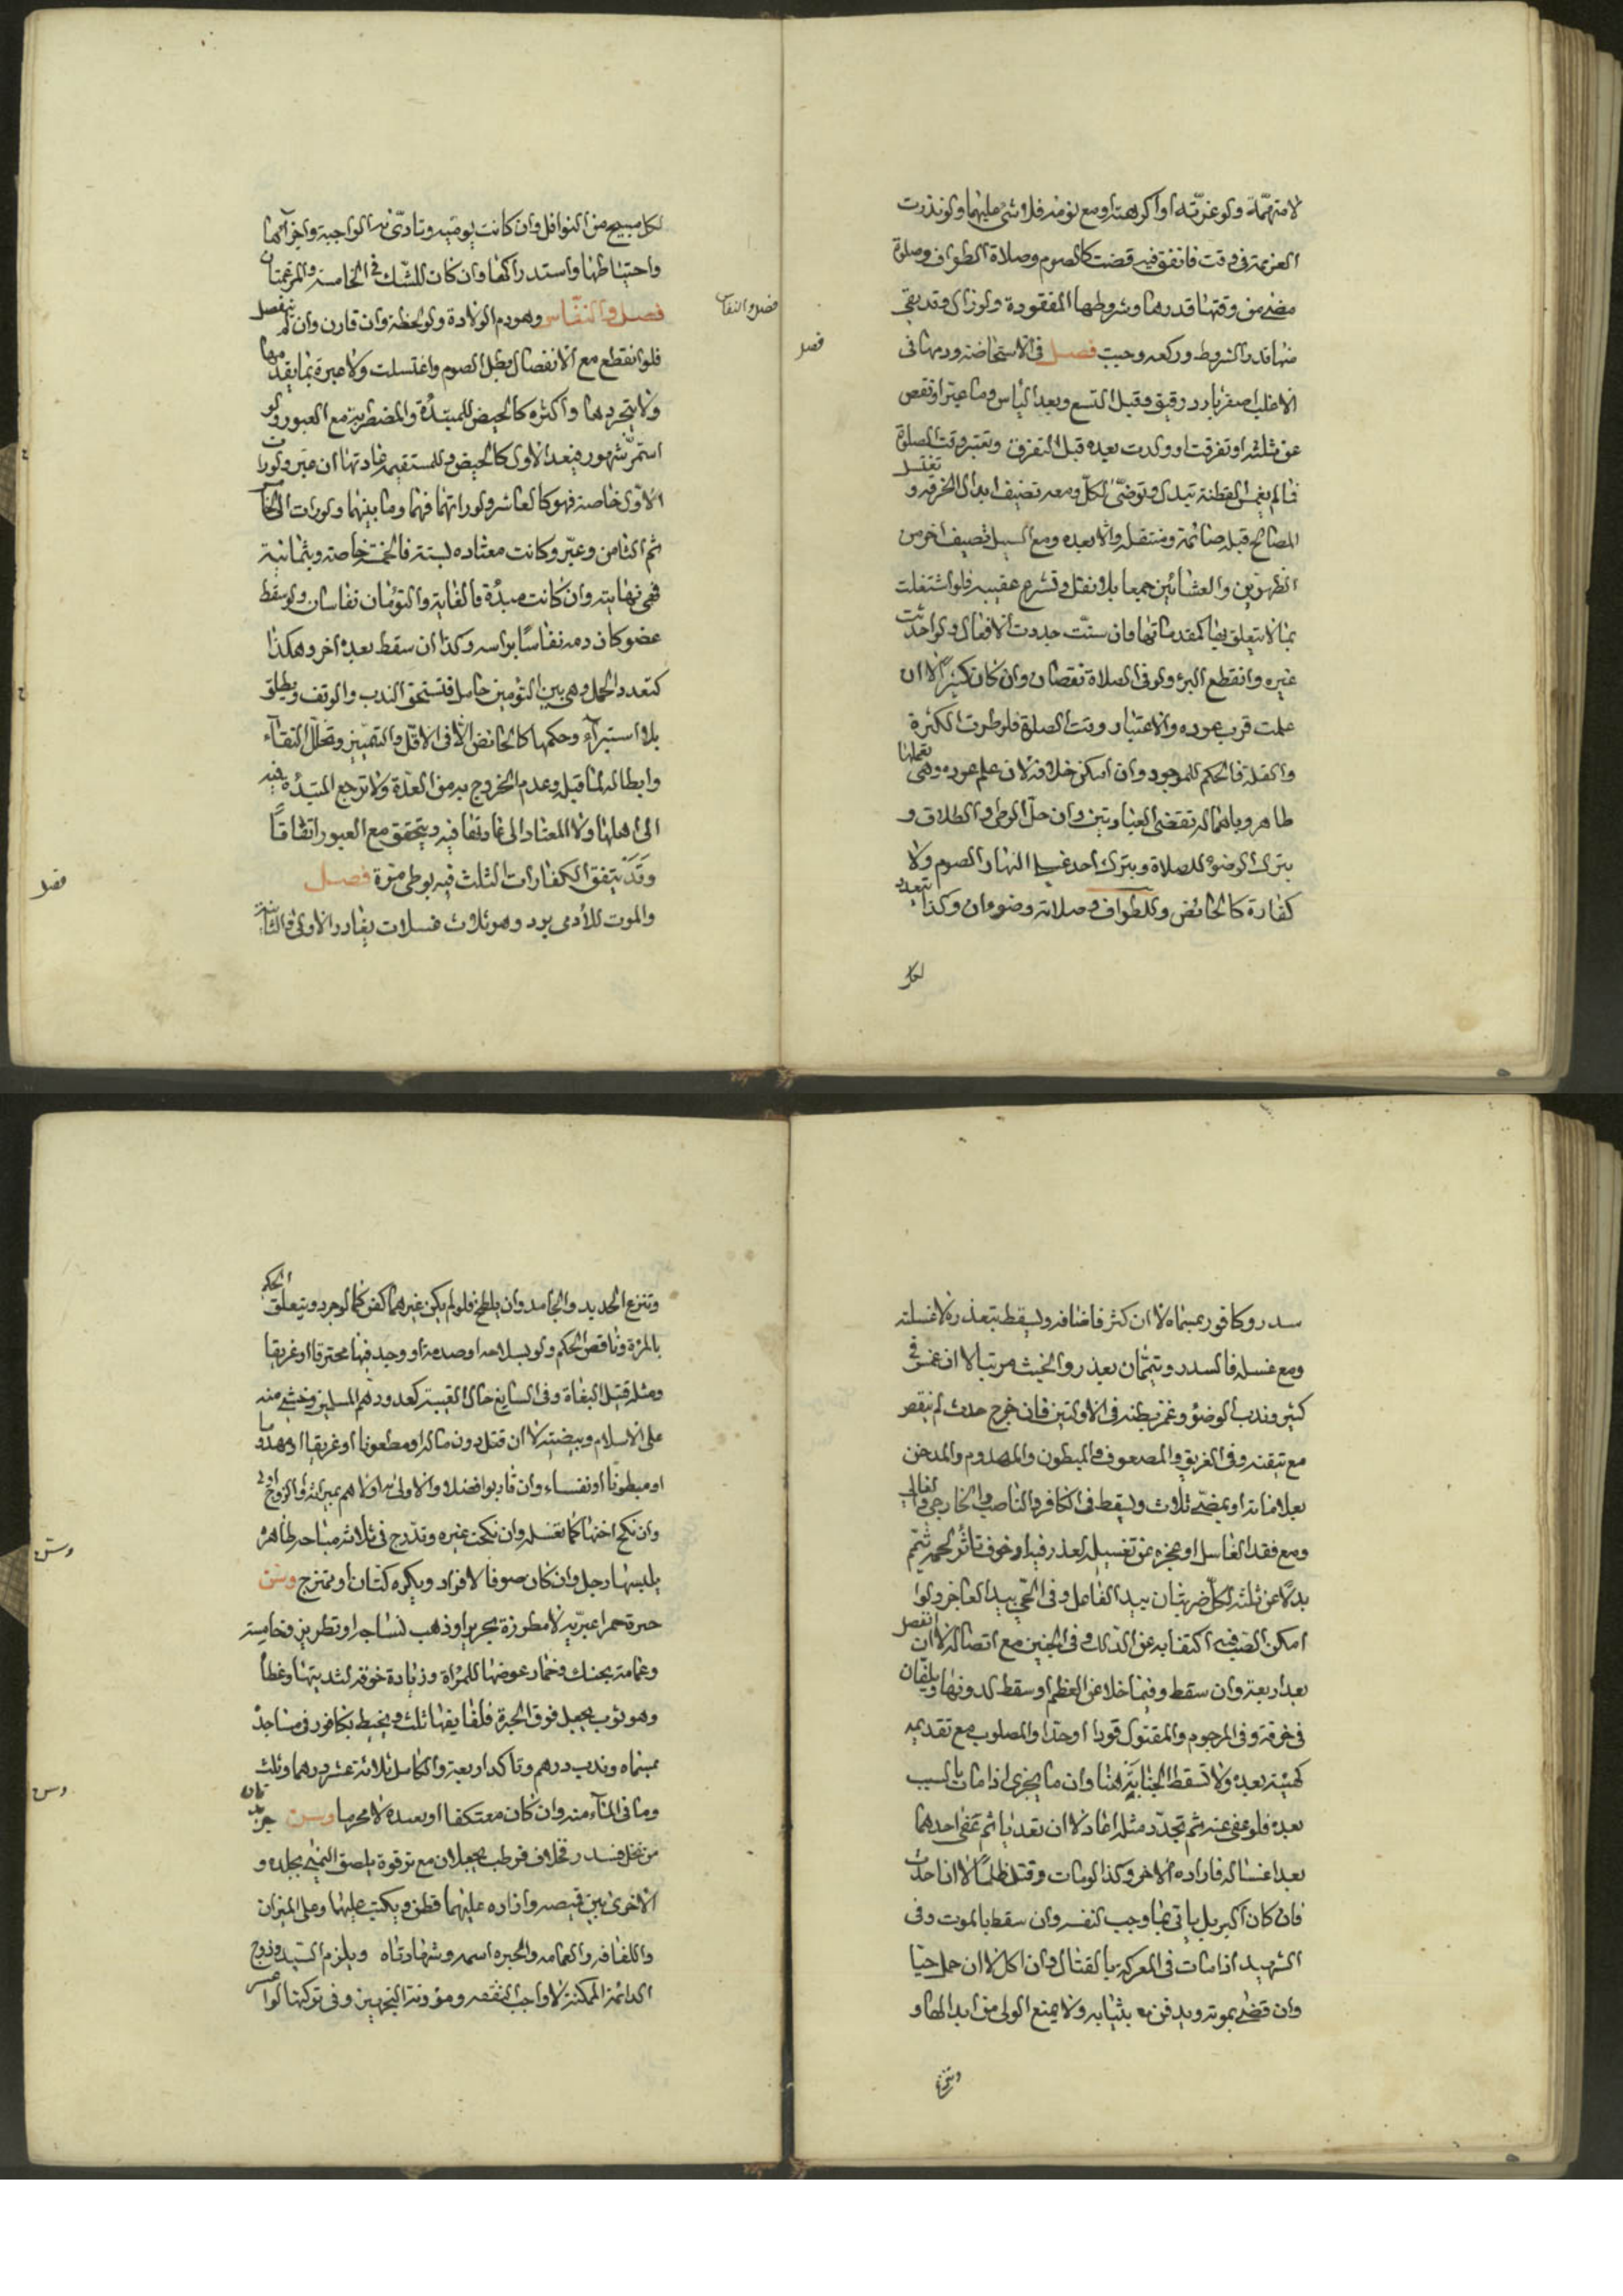 لامتهمة ولو عزته او اكرهته ومع نومه فلا شئ عليها ولو نذرت
العزيمة في وقت فاتفق فيه قضت كالصوم وصلاة الطواف وصلوة
مضى من وقتها قدرها وشروطها المفقودة ولو زال وقد بقى
منها قدر الشروط وركعه وجبت فصل في الاستحاضة ودمها في
الاغلب اصفر بارد رقيق وقبل التسع وبعد الياس وما عبر او نقص
عن ثلثه او تفرقت او ولدت بعده قبل التفرق وتعتبر وقت الصلوة
فما لم يغمس القطنة تبدل وتوضى لكل ومعه تضيف ابدال الخرقه وتغتسل
المصالح قبله صائمة ومتنفلة والا بعده ومع السيل تضيف اخر من
الظهرين والعشائين جمعا بلا نفل وتشرع عقيبه فلو اشتغلت
بما لا يتعلق بها كمقدماتها وان سنت جددت الافعال ولو احدثت
غيره وانقطع البرء ولو في الصلاة نقضان وان كان كثيرا الا ان
علمت قرب عوده والاعتبار وقت الصلوة فلو طرت الكثرة
والقلة فالحكم للموجود وان امكن خلافه لان علم عوده وهى بعملها
طاهر وباهماله تقضى العبادتين وان حل الوطى والطلاق و
بترك الوضوء للصلاة وبترك احد غسلى النهار الصوم ولا
كفارة كالحائض وللطواف وصلاته وضوءان وكذا يتعدد
لكل
فصل
لكل مبيح من النوافل وان كانت يوميه وتادى به الواجبة واجزائها
واحتياطها واستدراكها وان كان للشك في الخامسة والمرغمتان
فصل والنفاس وهو دم الولادة ولو لحظة وان قارن وان لم ينفصل
فلو انقطع مع الانفصال بطل الصوم واغتسلت ولا عبرة بما يقدمها
ولا بتجردها واكثره كالحيض للمبتدئة والمضطربة مع العبور ولو
استمر شهور فبعد الاول كالحيض وللمستقيمة عادتها ان عبر ولو رات
الاول خاصة فهو كالعاشر ولو راتهما فهما وما بينهما ولو رات الخامس
ثم الثامن وعبر وكانت معتاده لستة فالخمسة خاصة وبثمانية
فهى نهايته وان كانت مبتدئة فالغاية والتوئمان نفاسان ولو سقط
عضو كان دمه نفاسا براسه وكذا ان سقط بعده اخر وهكذا
كتعدد الحمل وهى بين التوئمين حامل فتستحق الندب والوقف ويطلق
بلا استبراء وحكمها كالحائض الا في الاقل والتمييز وتخلل النقاء
وابطاله لما قبله وعدم الخروج به من العدة ولا ترجع المبتدئه فيه
الى اهلها ولا المعتاد الى عادتها فيه ويتحقق مع العبور اتفاقا
وقد يتفق الكفارات الثلث فيه بوطى مرة فصل
والموت للادمى برد وهو ثلاث غسلات بقادر الاولى والثانية
فصل والنفاس
فصل
سدر وكافور بمسماه لا ان كثر فاضافه ويسقط بتعذره لا غسلته
ومع غسله فالسدر وتيممان بعذر والخبث مرتبا لا ان غمس في
كثير وندب الوضؤ وغمز بطنه في الاولتين فان خرج حدث لم ينقض
مع تيقنه وفي الغريق والمصعوق والمبطون والمهدوم والمدخن
بعلاماته او بمضى ثلاث ويسقط في الكافر والناصب والخارجي والغالي
ومع فقد الغاسل او عجزه عن تغسيله لعذر فيه او خوف تناثر لحمه تيمم
بدلا عن ثلثه لكل ضربتان بيد الفاعل وفي الحي بيد العاجز ولو
امكن الصب اكتفا به عن الدلك وفي الجنين مع اتصاله لا ان انفصل
بعد اربعة وان سقط وفيما خلا عن العظم او سقط لدونها ويلفان
في خرقة وفي المرجوم والمقتول قودا او حدا والمصلوب مع تقديمه
كهيئته بعده ولا تسقط الجنابة هنا وان ما يجزى اذا مات بالسبب
بعده فلو عفى عنه ثم تجدد مثله اعاد لا ان تعدد بائم عفى احدهما
بعد اغتساله فاراده الاخر وكذا لو مات وقتل ظلما لا ان احدث
فان كان اكبر بل ياتي بما وجب لنفسه وان سقط بالموت وفي
الشهيد اذا مات في المعركه بالقتال وان اكل لا ان حمل حيا
وان قضى بموته ويدفن معه بثيابه ولا يمنع الولى من ابدالها و
وتنزع
وتنزع الحديد والجامد وان يلطخ فلو لم يكن غيرهما كفن كما لو جرد ويتعلق الحكم
بالمرة وناقص الحكم ولو بسلاحه او صدمه او وجد فيها محترقا او غريقا
ومثله قتيل البغاة وفي السايغ حال الغيبة كعدو دهم المسلمين وخشى منه
على الاسلام وبيضته لا ان قتل دون ماله او مطعونا او غريقا او مهدوما
او مبطونا او نفساء وان قاربوا فضلا والاولى به اولاهم بميراثه والزوج اولى
وان نكح اختها كما تغسله وان نكحت غيره وتدرج في ثلاثة مباحه طاهره
يلبسها رجل وان كان صوفا لا فراد ويكره كتان او ممتزج وسن
حبرة حمرا عبرية لا مطرزة بحرير او ذهب لنساجه او تطريز وخامسة
وعمامة بحنك وخمار عوضها للمراة وزيادة خرقه لثديتها وغطا
وهو ثوب يجعل فوق الحبرة فلفايفها ثلث ويحنط بكافور في مساجد
بمسماه وندب درهم وتاكد اربعة والكامل ثلاثة عشر درهما وثلث
وما في الماء منه وان كان معتكفا او بعده لا محرما وسن جريدتان
من نخل فسدر فخلاف فرطب يجعلان مع ترقوة يلصق اليمنى بجلده و
الاخرى بين قميصه وازاره عليهما قطن ويكتب عليهما وعلى الميزان
واللفافه والعمامه والحبره اسمه وشهادتاه ويلزم السيد وزوج
الدائمة الممكنة لا واجب النفقه ومؤونة التجهيز وفي تركتها لو اعسر
وسن
وسن